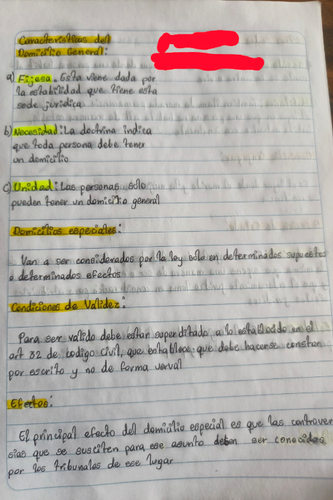 Características del
Domicilio General:
a) Fijeza, Esta viene dada por
la estabilidad que tiene esta
sede jurídica
b) Necesidad: La doctrina indica
que toda persona debe tener
un domicilio
c) Unidad: Las personas sólo
pueden tener un domicilio general
Domicilios especiales:
Van a ser considerados por la ley solo en determinados supuestos
o determinados efectos
Condiciones de Validez:
Para ser válido debe estar supeditado a lo establecido en el
art 32 de código civil, que establece que debe hacerse constar
por escrito y no de forma verval
Efectos:
El principal efecto del domicilio especial es que las controver
sias que se susciten para ese asunto deben ser conocidas
por los tribunales de ese lugar